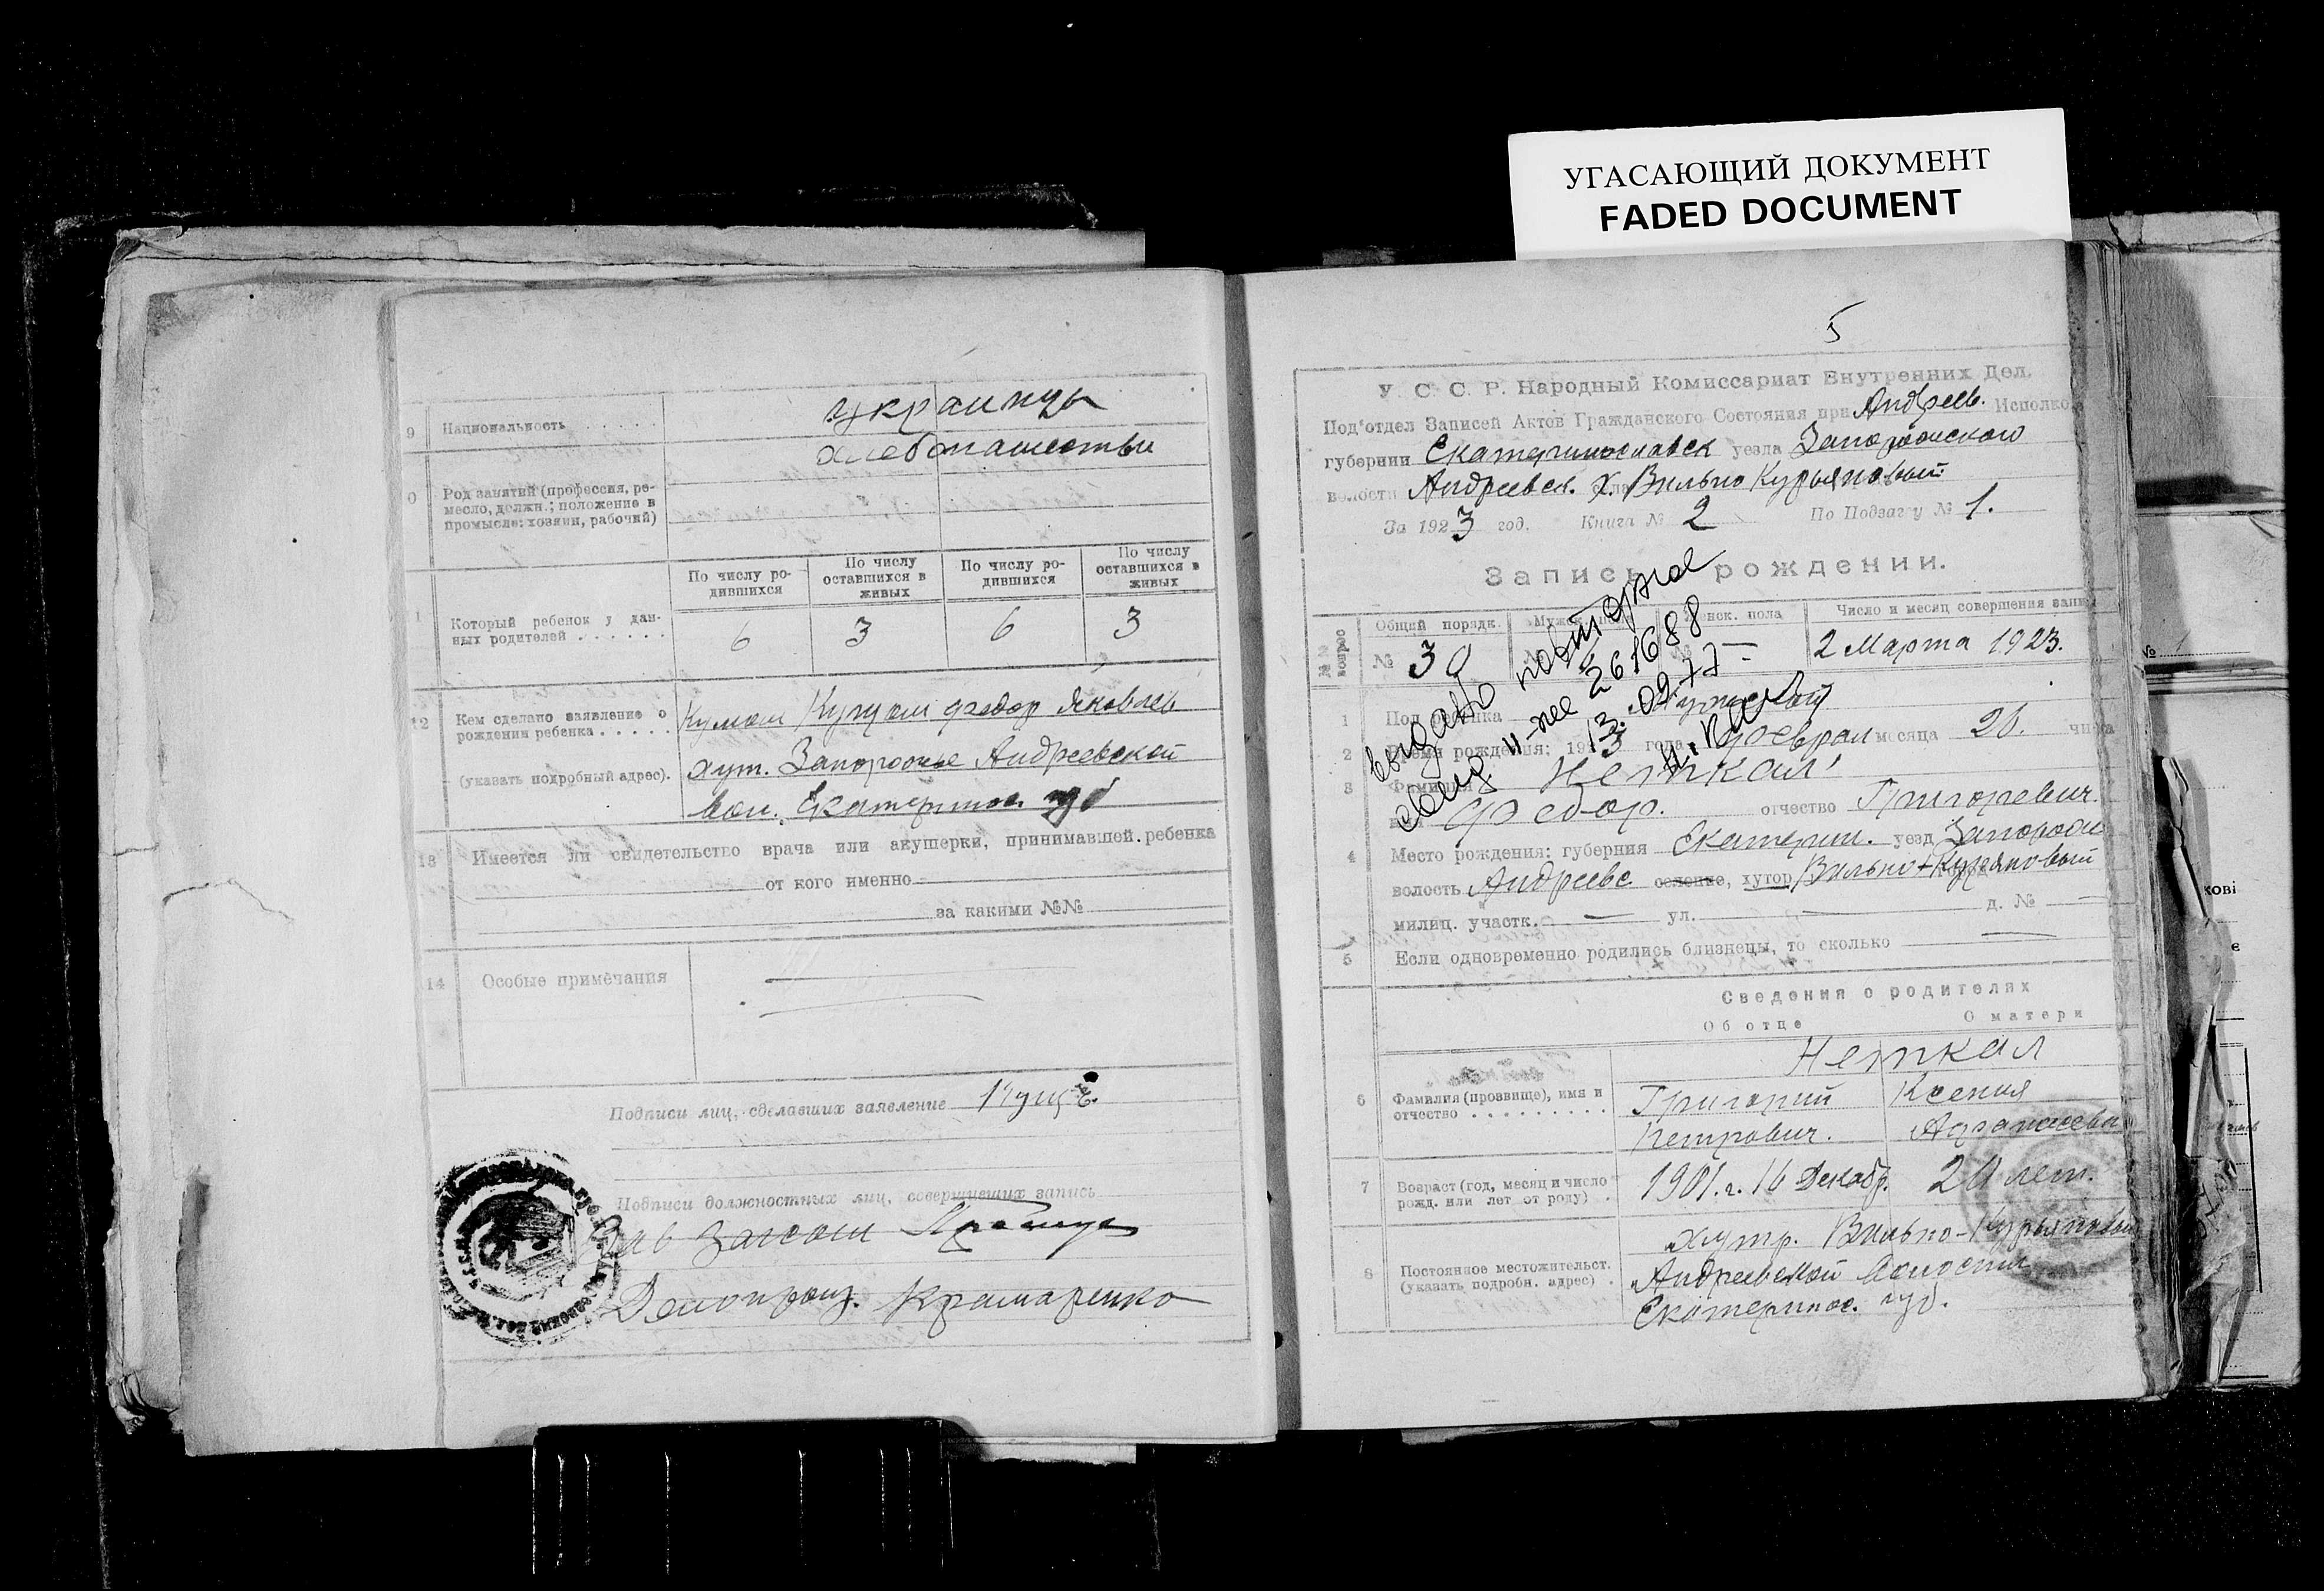 УГАСАЮЩИЙ ДОКУМЕНТ
FADED DOCUMENT
9 Национальность . . . . . .
украинцы
хлебопашество
0 Род занятий (профессия, ре-
месло, должн.; положение в
промысле: хозяин, рабочий)
По числу ро-
дившихся
По числу
оставшихся в
живых
По числу ро-
дившихся
По числу
оставшихся в
живых
1 Который ребенок у дан-
ных родителей . . . . . . .
6 3 6 3
12 Кем сделано заявление о
рождении ребенка . . . . .
(указать подробный адрес).
Федор Яковлев
хут. Запорожье Андреевской
вол. Екатеринос. губ
13 Имеется ли свидетельство врача или акушерки, принимавшей ребенка
от кого именно
за какими №№
14 Особые примечания
Подписи лиц, сделавших заявление
Подписи должностных лиц, совершивших запись
Зав Загсом
Делопроиз. Крамаренко
5
У. С. С. Р. Народный Комиссариат Внутренних Дел.
Под'отдел Записей Актов Гражданского Состояния при Андреев. Исполко
губернии Екатеринославск уезда Запорожского
волости Андреевск. х. Вильно Курьяновый
За 1923 год. Книга № 2 По Подзагсу № 1.
Запись рождении.
№№ вопрос
Общий порядк. Мужск. п Женск. пола Число и месяц совершения запис
№ 30 № № 2 Марта 1923.
выдано повторное
свид. 261688
13.09.77
1 Пол ребенка Мужеский
2 Время рождения: 1923 года Феврал месяца 26. числа
3 Фамилия Неткал
имя Федор. отчество Григоревич.
4 Место рождения: губерния Екатерин. уезд Запорож
волость Андреевс селение, хутор Вильно-Курьяновый
милиц. участк. — ул. — д. № —
5 Если одновременно родились близнецы, то сколько —
Сведения о родителях
Об отце О матери
Неткал
6 Фамилия (прозвище), имя и
отчество . . . . . . . . .
Григорий Ксения
Петрович. Афанасеевн
7 Возраст (год, месяц и число
рожд. или лет от роду) .
1901. г. 16 Декабр. 20 лет.
8 Постоянное местожительст.
(указать подробн. адрес) .
хутр. Вильно-Курьяновый
Андреевской волости
Екатеринос. губ.
№ 1
кові